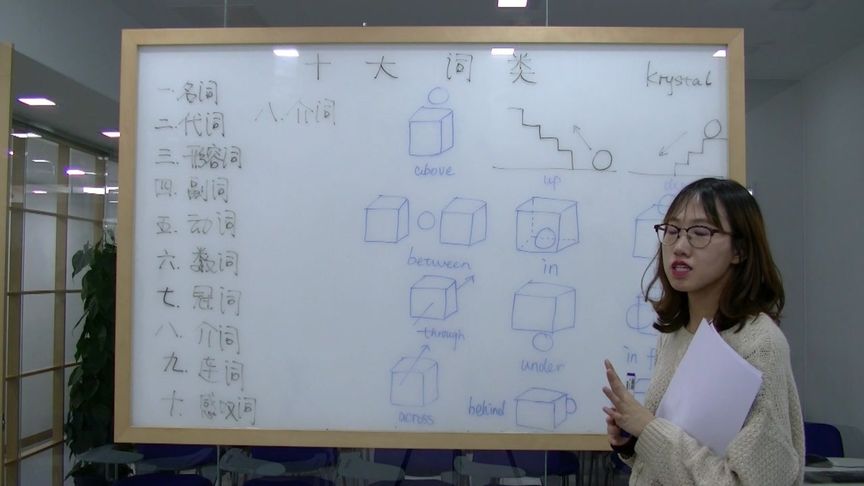 十大词类
Krystal
一.名词
二.代词
三.形容词
四.副词
五.动词
六.数词
七.冠词
八.介词
九.连词
十.感叹词
八.介词
above
up
between
in
through
under
in f
across
behind